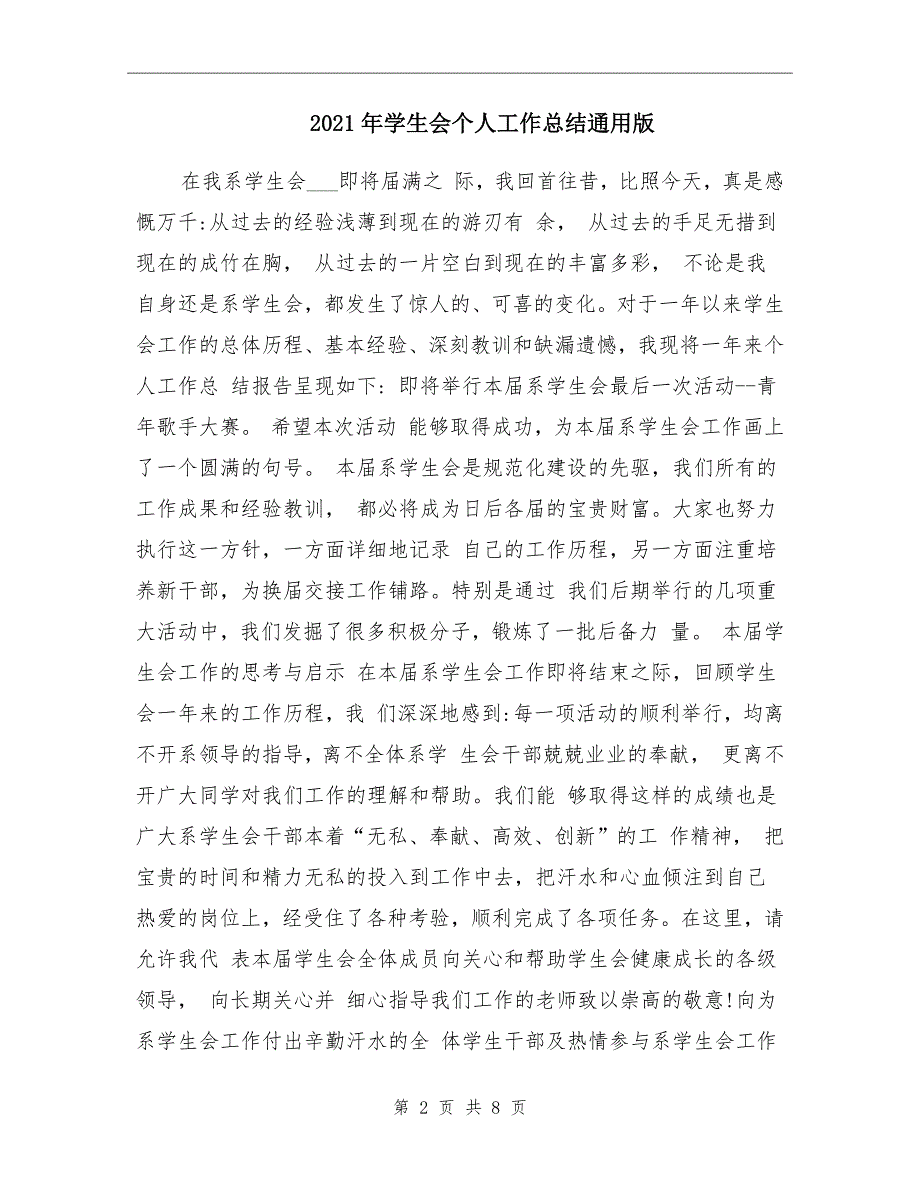 2021年学生会个人工作总结通用版
在我系学生会___即将届满之 际，我回首往昔，比照今天，真是感
慨万千:从过去的经验浅薄到现在的游刃有 余， 从过去的手足无措到
现在的成竹在胸， 从过去的一片空白到现在的丰富多彩， 不论是我
自身还是系学生会，都发生了惊人的、可喜的变化。对于一年以来学生
会工作的总体历程、基本经验、深刻教训和缺漏遗憾，我现将一年来个
人工作总 结报告呈现如下: 即将举行本届系学生会最后一次活动--青
年歌手大赛。 希望本次活动 能够取得成功，为本届系学生会工作画上
了一个圆满的句号。 本届系学生会是规范化建设的先驱，我们所有的
工作成果和经验教训， 都必将成为日后各届的宝贵财富。大家也努力
执行这一方针，一方面详细地记录 自己的工作历程，另一方面注重培
养新干部，为换届交接工作铺路。特别是通过 我们后期举行的几项重
大活动中，我们发掘了很多积极分子，锻炼了一批后备力 量。 本届学
生会工作的思考与启示 在本届系学生会工作即将结束之际，回顾学生
会一年来的工作历程，我 们深深地感到:每一项活动的顺利举行，均离
不开系领导的指导，离不全体系学 生会干部兢兢业业的奉献， 更离不
开广大同学对我们工作的理解和帮助。我们能 够取得这样的成绩也是
广大系学生会干部本着“无私、奉献、高效、创新”的工 作精神， 把
宝贵的时间和精力无私的投入到工作中去，把汗水和心血倾注到自己
热爱的岗位上，经受住了各种考验，顺利完成了各项任务。在这里，请
允许我代 表本届学生会全体成员向关心和帮助学生会健康成长的各级
领导， 向长期关心并 细心指导我们工作的老师致以崇高的敬意!向为
系学生会工作付出辛勤汗水的全 体学生干部及热情参与系学生会工作
第 2 页 共 8 页